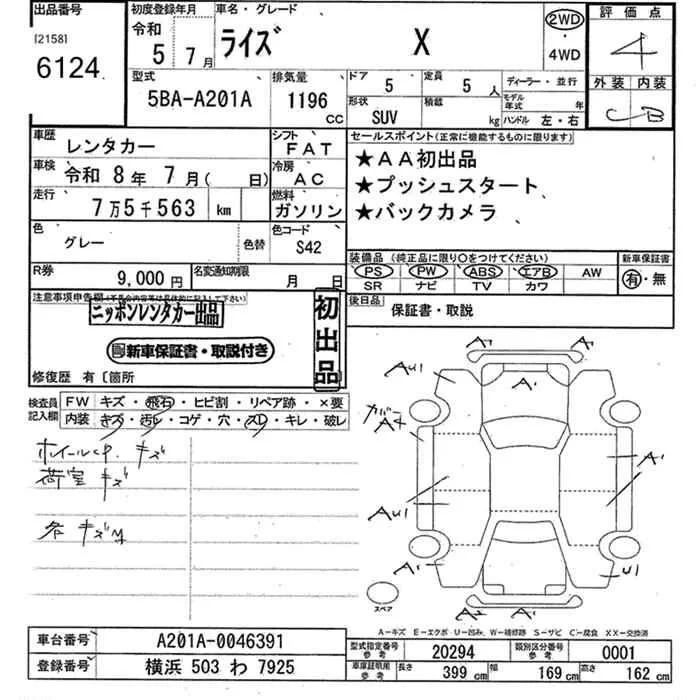 出品番号
[2158]
6124
初度登録年月
令和
5 7月
車名・グレード
ライズ X
2WD
・
4WD
評価点
4
外装 内装
C B
型式
5BA-A201A
排気量
1196
cc
ドア
5
定員
5 人
ディーラー・並行
形状
SUV
積載
kg
モデル年式 年
ハンドル 左・右
車歴
レンタカー
シフト
FAT
車検
令和 8年 7月( 日)
冷房
AC
走行
7万5千563 km
燃料
ガソリン
色
グレー
色替
色コード
S42
セールスポイント(正常に機能するものに限ります)
★AA初出品
★プッシュスタート
★バックカメラ
装備品 (純正品に限り○をつけてください)
PS PW ABS エアB AW
SR ナビ TV カワ
新車保証書
有・無
R券
9,000円
名変通知期限
月 日
後日品
保証書・取説
注意事項申告欄
ニッポンレンタカー出品
新車保証書・取説付き
初出品
修復歴 有〔箇所
検査員記入欄
FW キズ・飛石・ヒビ割・リペア跡・×要
内装 キズ・汚レ・コゲ・穴・スレ・キレ・破レ
ホイールCP. キズ
荷室 キズ
各 キズM
A1
AU1
A1
カバー
A2
A1
AU1
A1
U1
A2
A1
スペア
A-キズ E-エクボ U-凹み W-補修跡 S-サビ C-腐食 XX-交換済
車台番号
A201A-0046391
登録番号
横浜 503 わ 7925
型式指定番号
参考
20294
類別区分番号
参考
0001
車庫証明用
参考
長さ 399 cm
幅 169 cm
高さ 162 cm